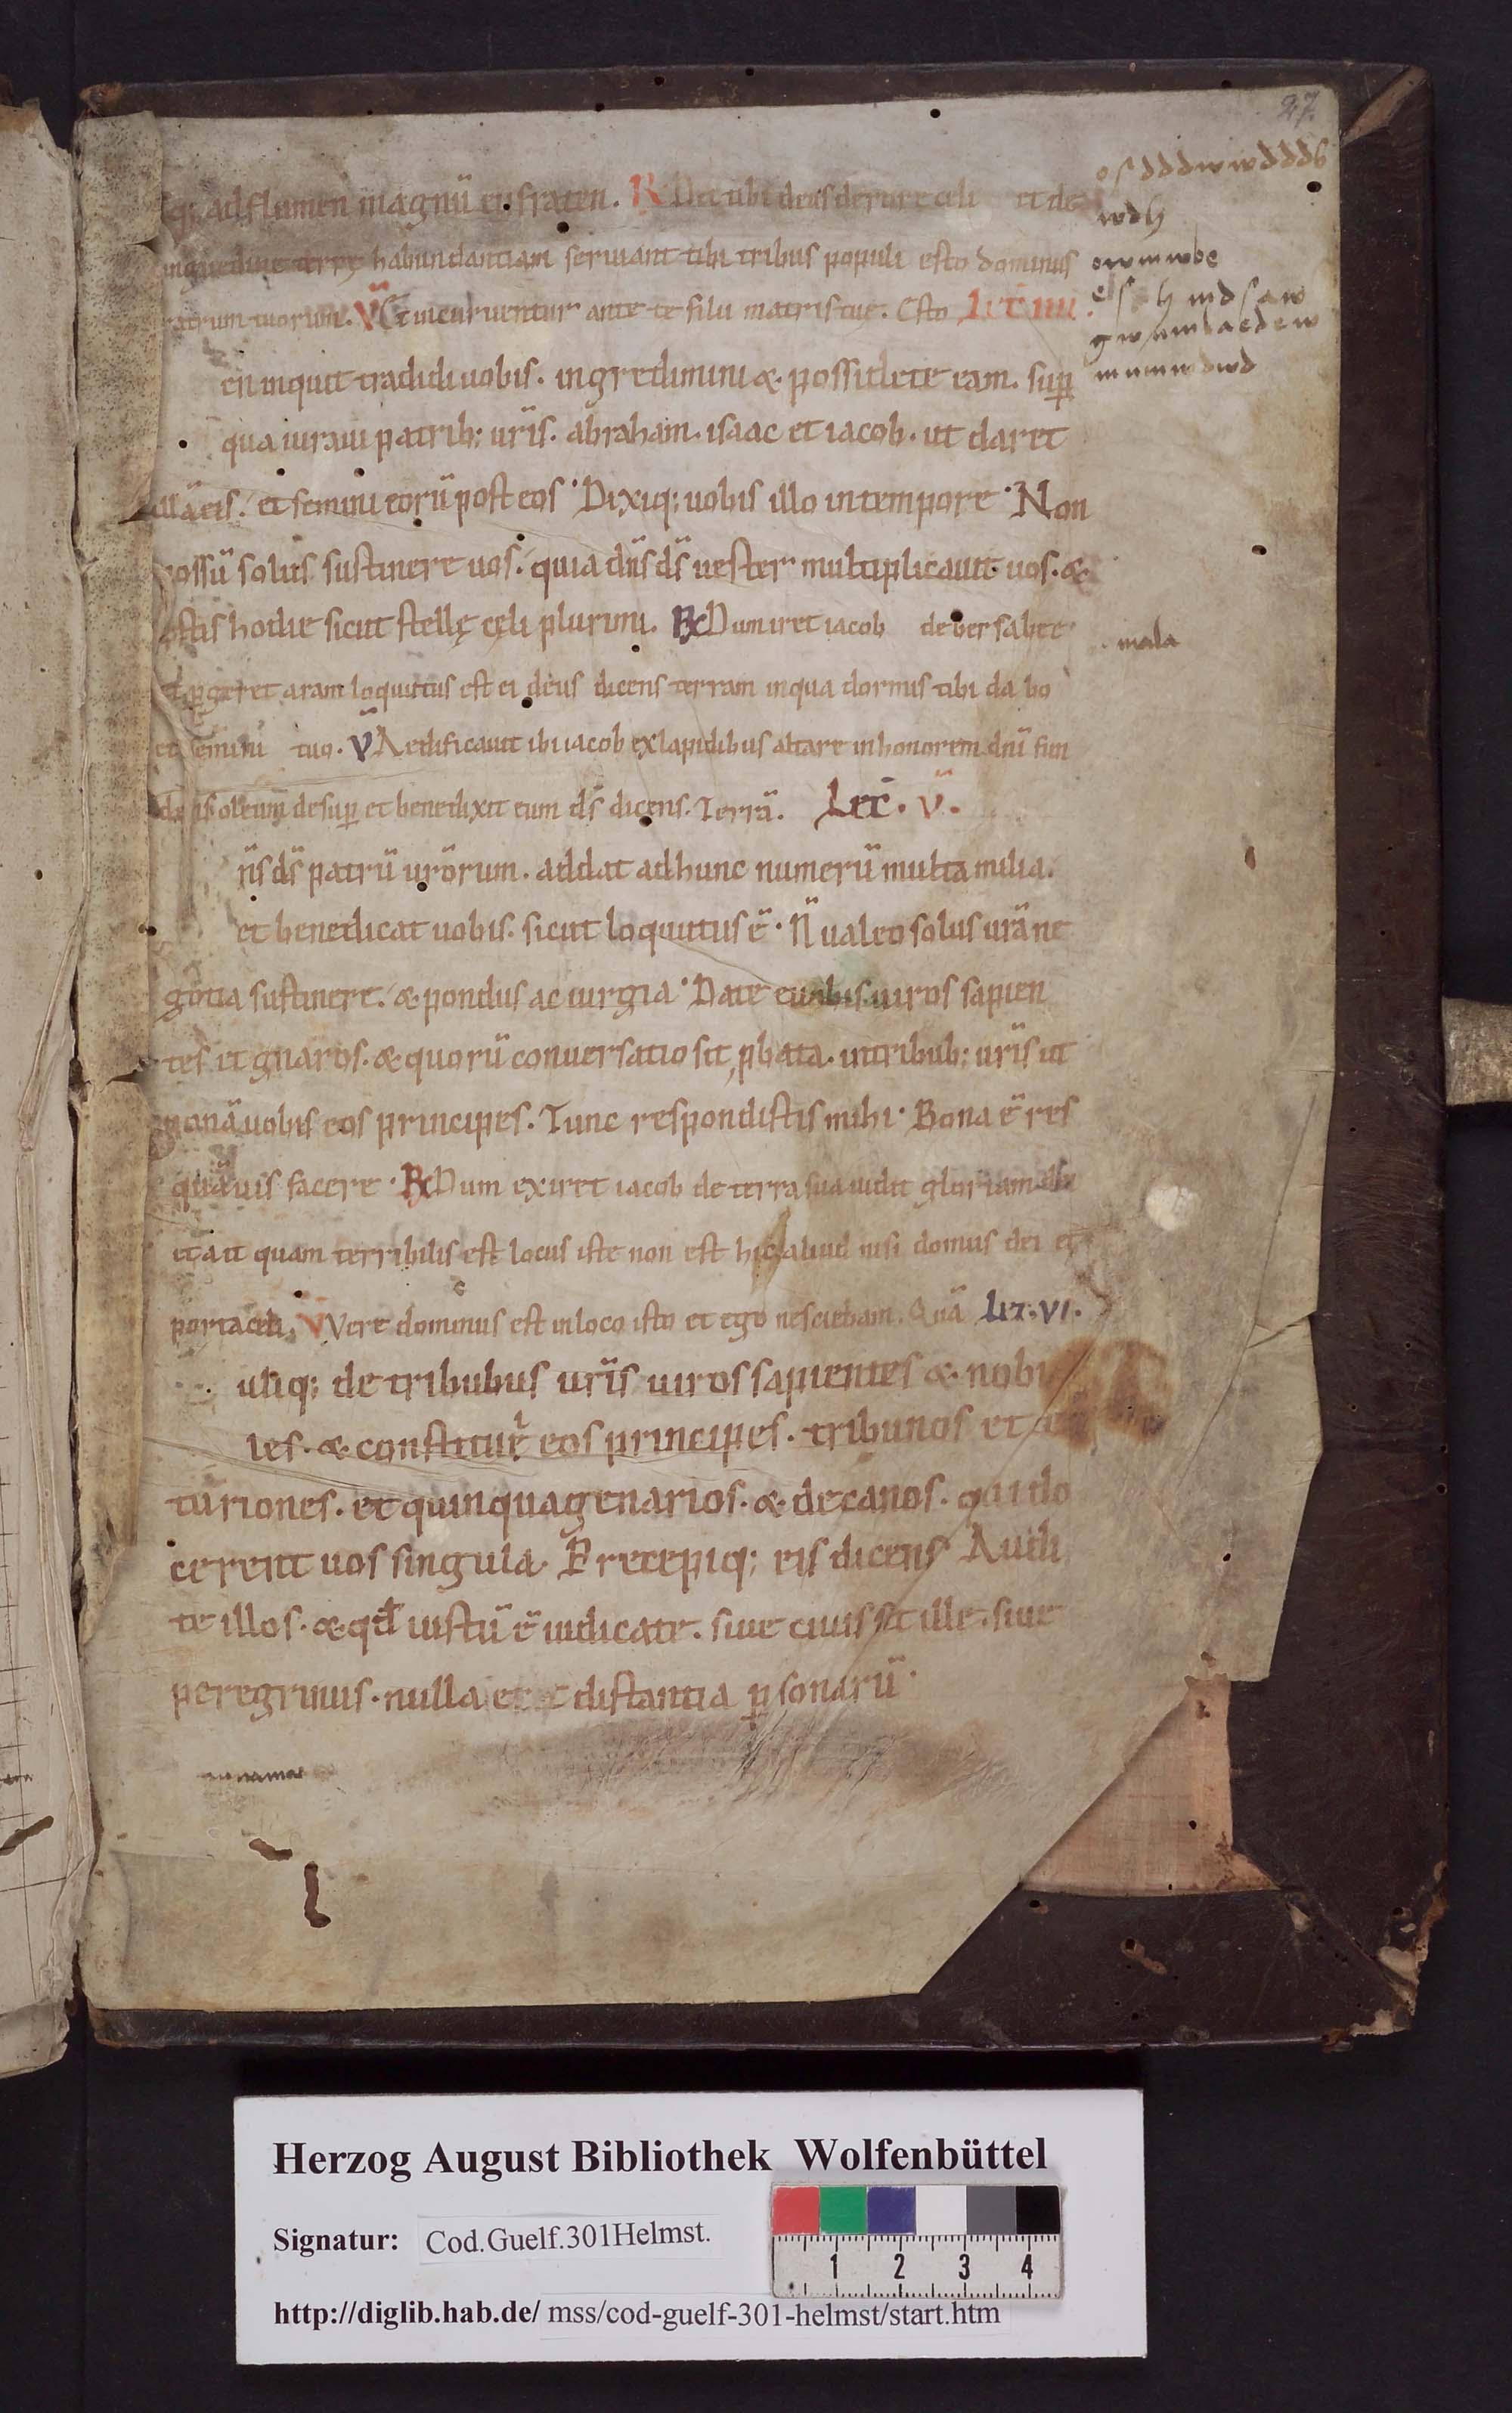 27.
q; ad flumen magnū eufraten. R Det tibi deus de rore celi et de
inguedine terrę habundantiam seruiant tibi tribus populi esto dominus
ratrum tuorum. V Et incuruentur ante te filii matris tuę. Esto Lec̄ IIII.
en inquit tradidi uobis. ingredimini & possidete eam. suꝑ
qua iuraui patrib; ur̄is. abraham. isaac et iacob. ut daret
illā eis. et semini eorū post eos. Dixiq; uobis illo in tempore. Non
possū solus sustinere uos. quia dn̄s ds̄ uester multiplicauit uos. &
estis hodie sicut stellę cęli plurimi. R Dum iret iacob de bersabee
et ꝑgeret aram loquutus est ei deus dicens terram in qua dormis tibi dabo
et semini tuo. V Aedificauit ibi iacob ex lapidibus altare in honorem dn̄i fun
dens oleum desuꝑ et benedixit eum ds̄ dicens. Terrā. Lec̄. V.
n̄s ds̄ patrū ur̄orum. addat ad hunc numerū multa milia.
et benedicat uobis. sicut loquutus ē. N̄ ualeo solus ur̄a ne
gotia sustinere. & pondus ac iurgia. Date e uobis uiros sapien
tes et gnaros. & quorū conuersatio sit ꝓbata. in tribub; ur̄is ut
ponā uobis eos principes. Tunc respondistis mihi. Bona ē res
quā uis facere. R Dum exiret iacob de terra sua uidit gloriam dei
et ait quam terribilis est locus iste non est hic aliud nisi domus dei et
porta celi. V Vere dominus est in loco isto et ego nesciebam. Quā Lec. VI.
uliq; de tribubus ur̄is uiros sapientes & nobi
les. & constitui eos principes. tribunos et cen
turiones. et quinquagenarios. & decanos. qui do
cerent uos singula. Precepiq; eis dicens Audi
te illos. & qd̄ iustū ē iudicate. siue ciuis sit ille. siue
peregrinus. nulla erit distantia ꝑsonarū.
wdh
owmwbe
mala
Herzog August Bibliothek Wolfenbüttel
Signatur: Cod.Guelf.301Helmst.
1 2 3 4
http://diglib.hab.de/ mss/cod-guelf-301-helmst/start.htm